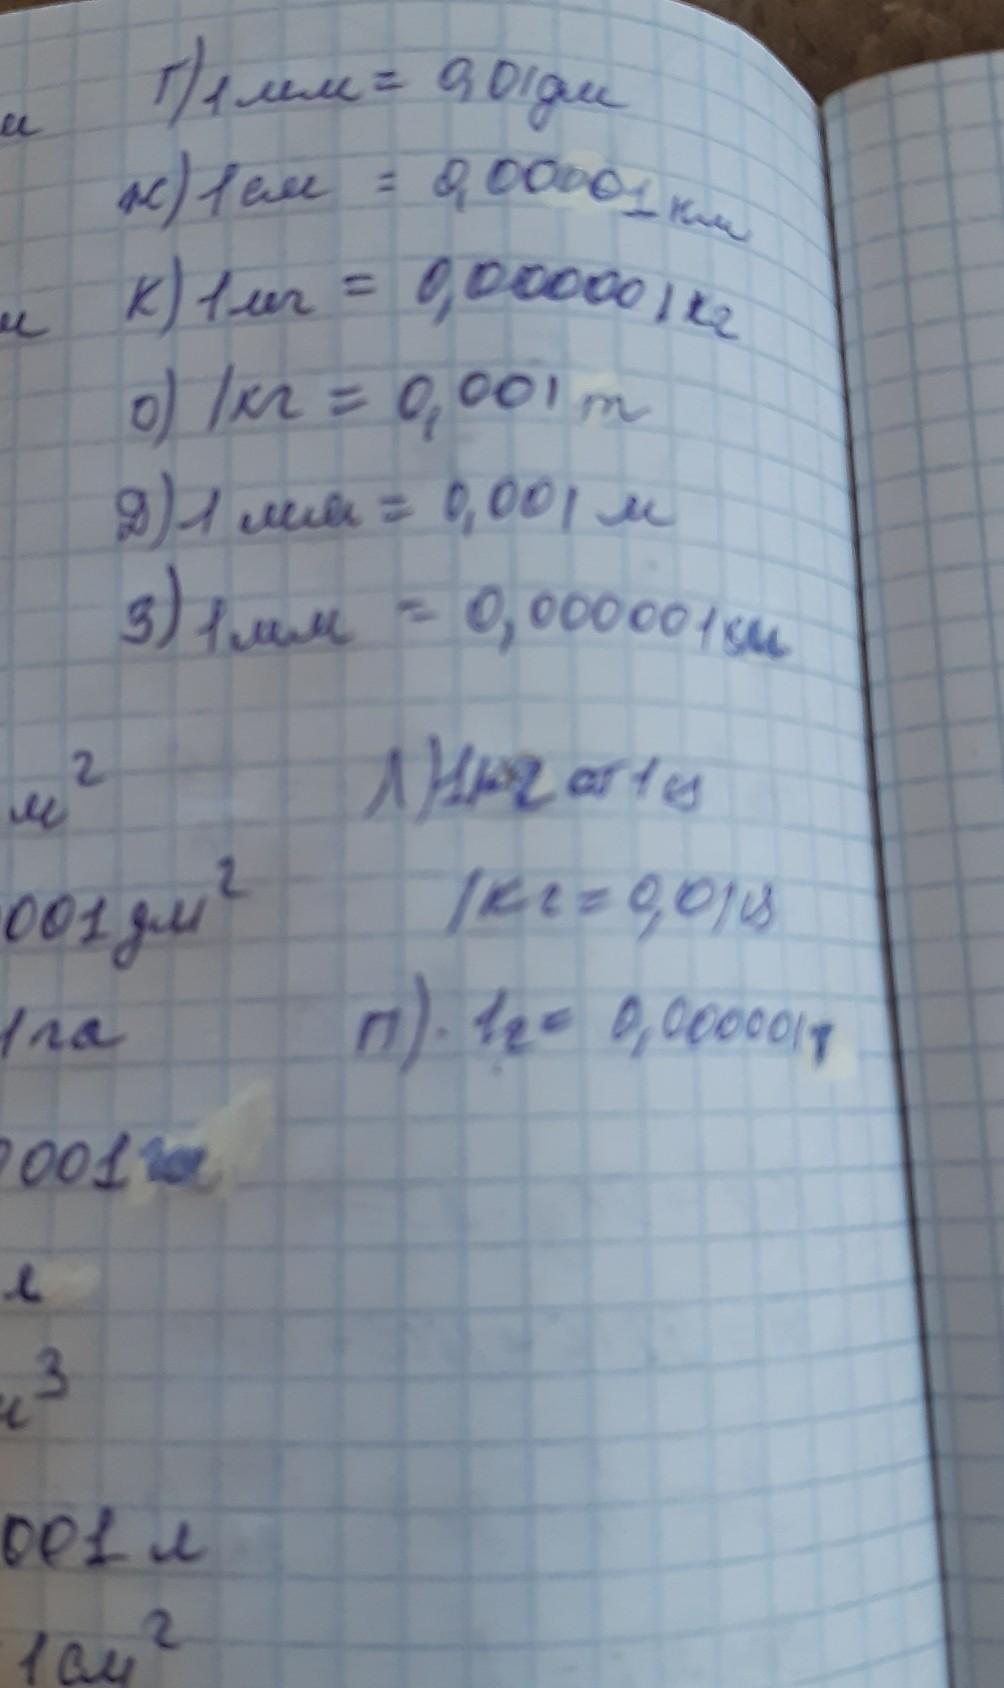 г) 1 мм = 0,01 дм
ж) 1 см = 0,00001 км
к) 1 мг = 0,000001 кг
о) 1 кг = 0,001 т
д) 1 мм = 0,001 м
з) 1 мм = 0,000001 км
м²
л) 1 кг от 1 ц
001 дм²
1 кг = 0,01 ц
1 га
п) 1 г = 0,000001 т
001 га
л
³
001 л
1 см²